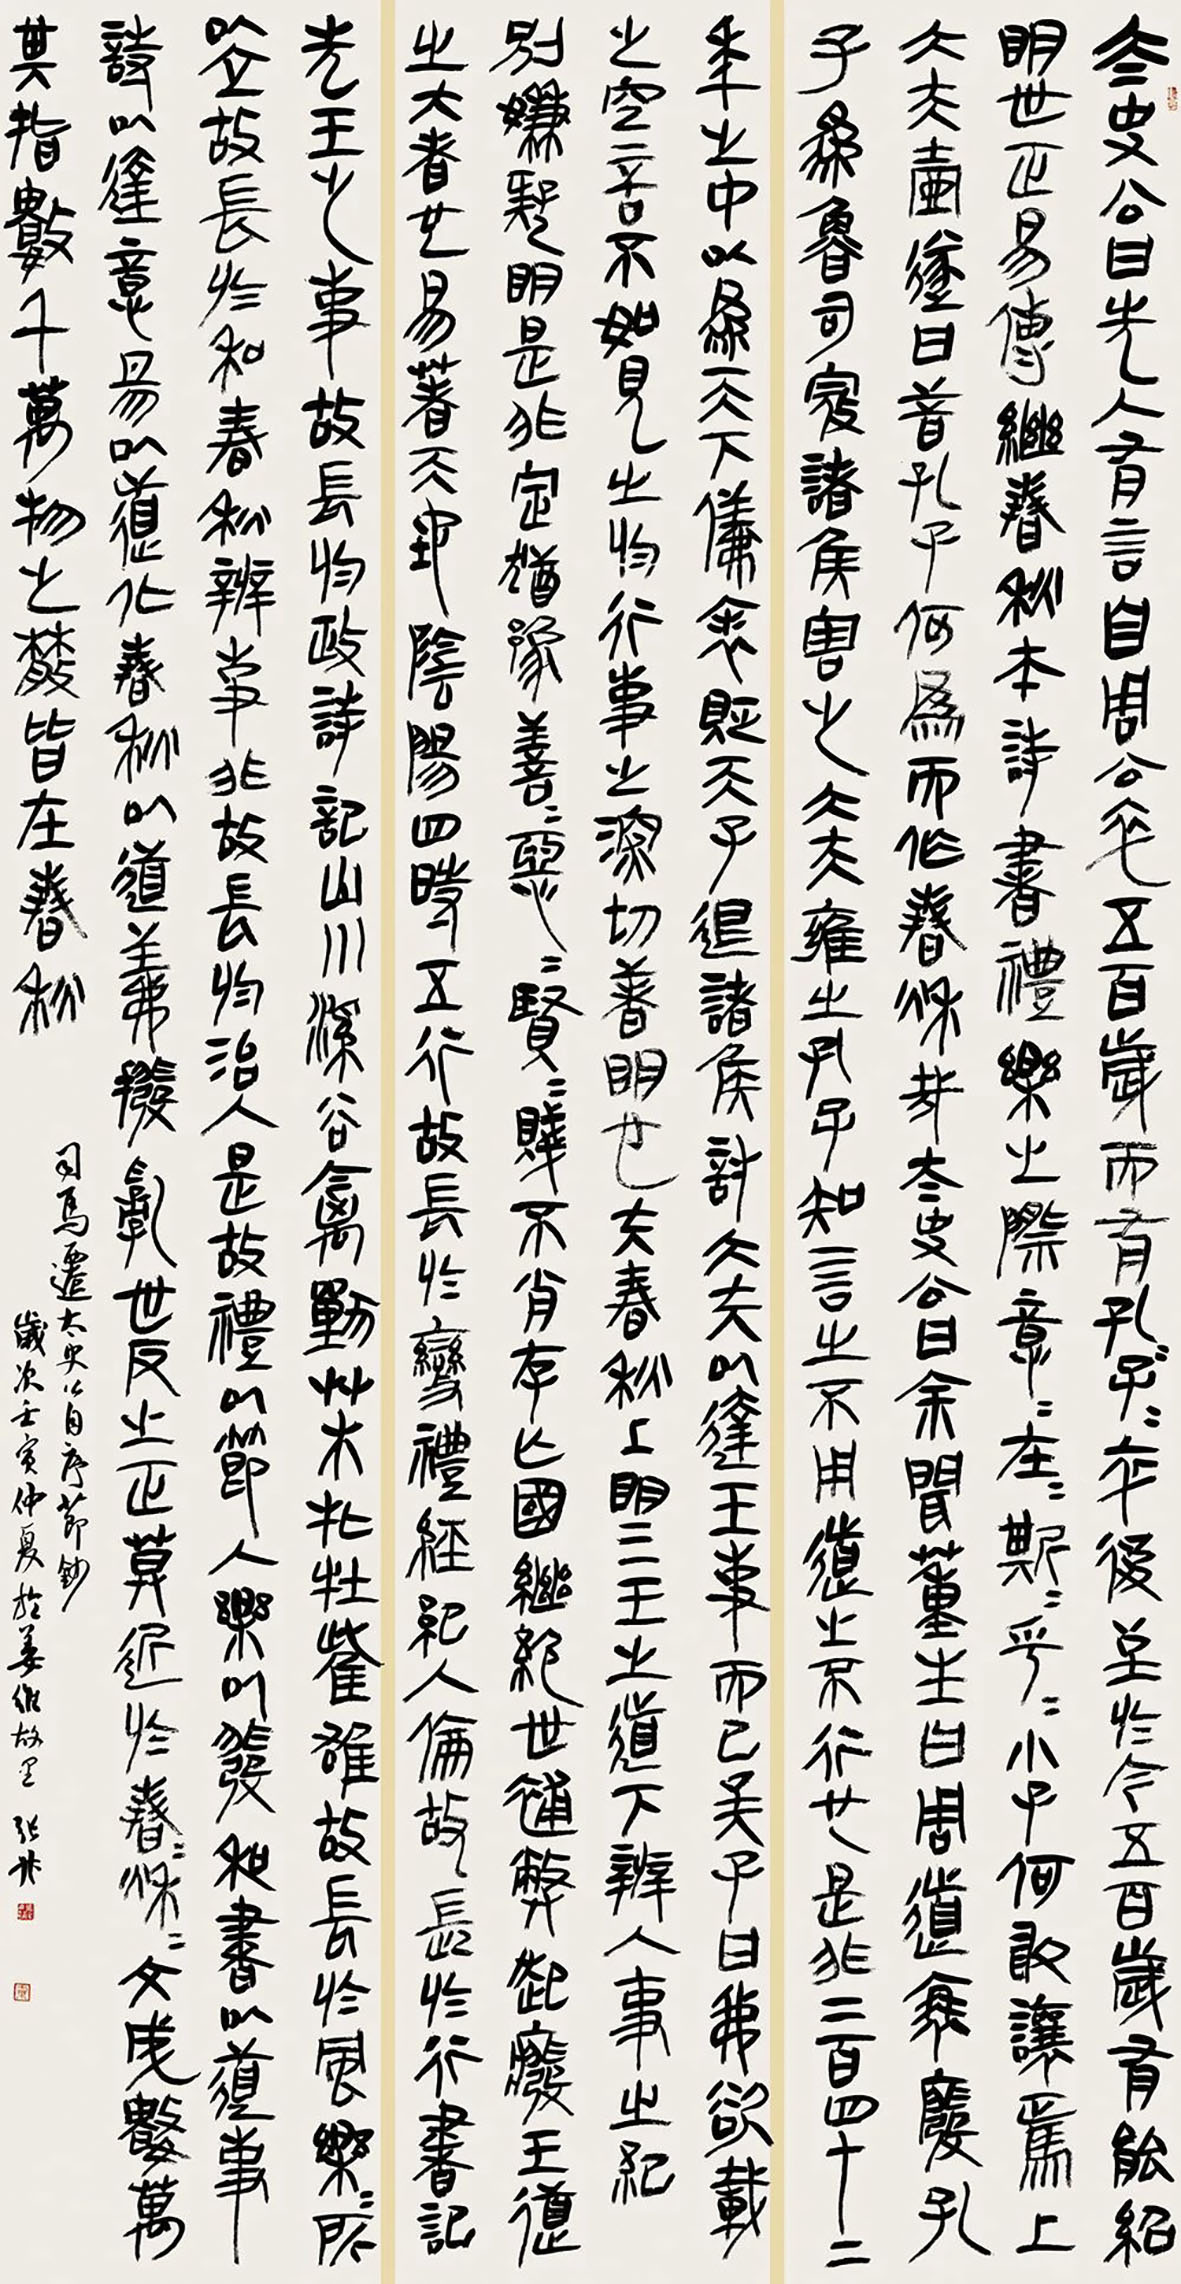 太史公曰先人有言自周公卒五百歲而有孔子=卒後至於今五百歲有能紹
明世正易傳繼春秋本詩書禮樂之際意=在=斯=乎=小子何敢讓焉上
大夫壺遂曰昔孔子何為而作春秋哉太史公曰余聞董生曰周道衰廢孔
子為魯司寇諸侯害之大夫雍之孔子知言之不用道之不行也是非二百四十二
年之中以為天下儀表貶天子退諸侯討大夫以達王事而已矣子曰我欲載
之空言不如見之於行事之深切著明也夫春秋上明三王之道下辨人事之紀
別嫌疑明是非定猶豫善=惡=賢=賤不肖存亡國繼絕世補弊起廢王道
之大者也易著天地陰陽四時五行故長於變禮經紀人倫故長於行書記
先王之事故長於政詩記山川溪谷禽獸草木牝牡雌雄故長於風樂=所
以立故長於和春秋辨是非故長於治人是故禮以節人樂以發和書以道事
詩以達意易以道化春秋以道義撥亂世反之正莫近於春=秋=文成數萬
其指數千萬物之散皆在春秋
司馬遷太史公自序節鈔
歲次壬寅仲夏於姜維故里